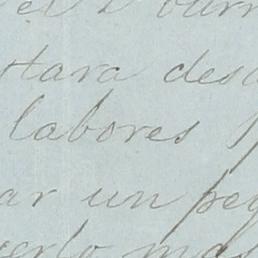 tara des
labores
ar un peq
verlo mas